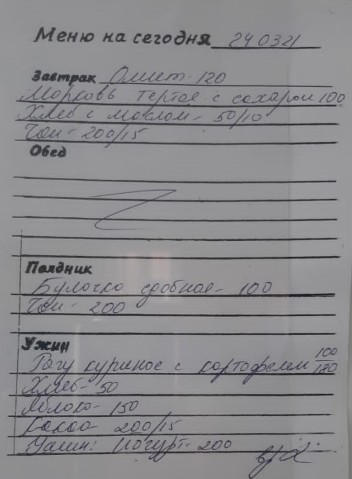 Меню на сегодня 24.03.21
Завтрак Омлет - 120
Морковь тертая с сахаром 100
Хлеб с маслом - 50/10
Чай - 200/15
Обед
Полдник
Булочка сдобная - 100
Чай - 200
Ужин
Рагу куриное с картофелем 100/170
Хлеб - 50
Яблоко - 150
Какао 200/15
Ужин: Йогурт - 200